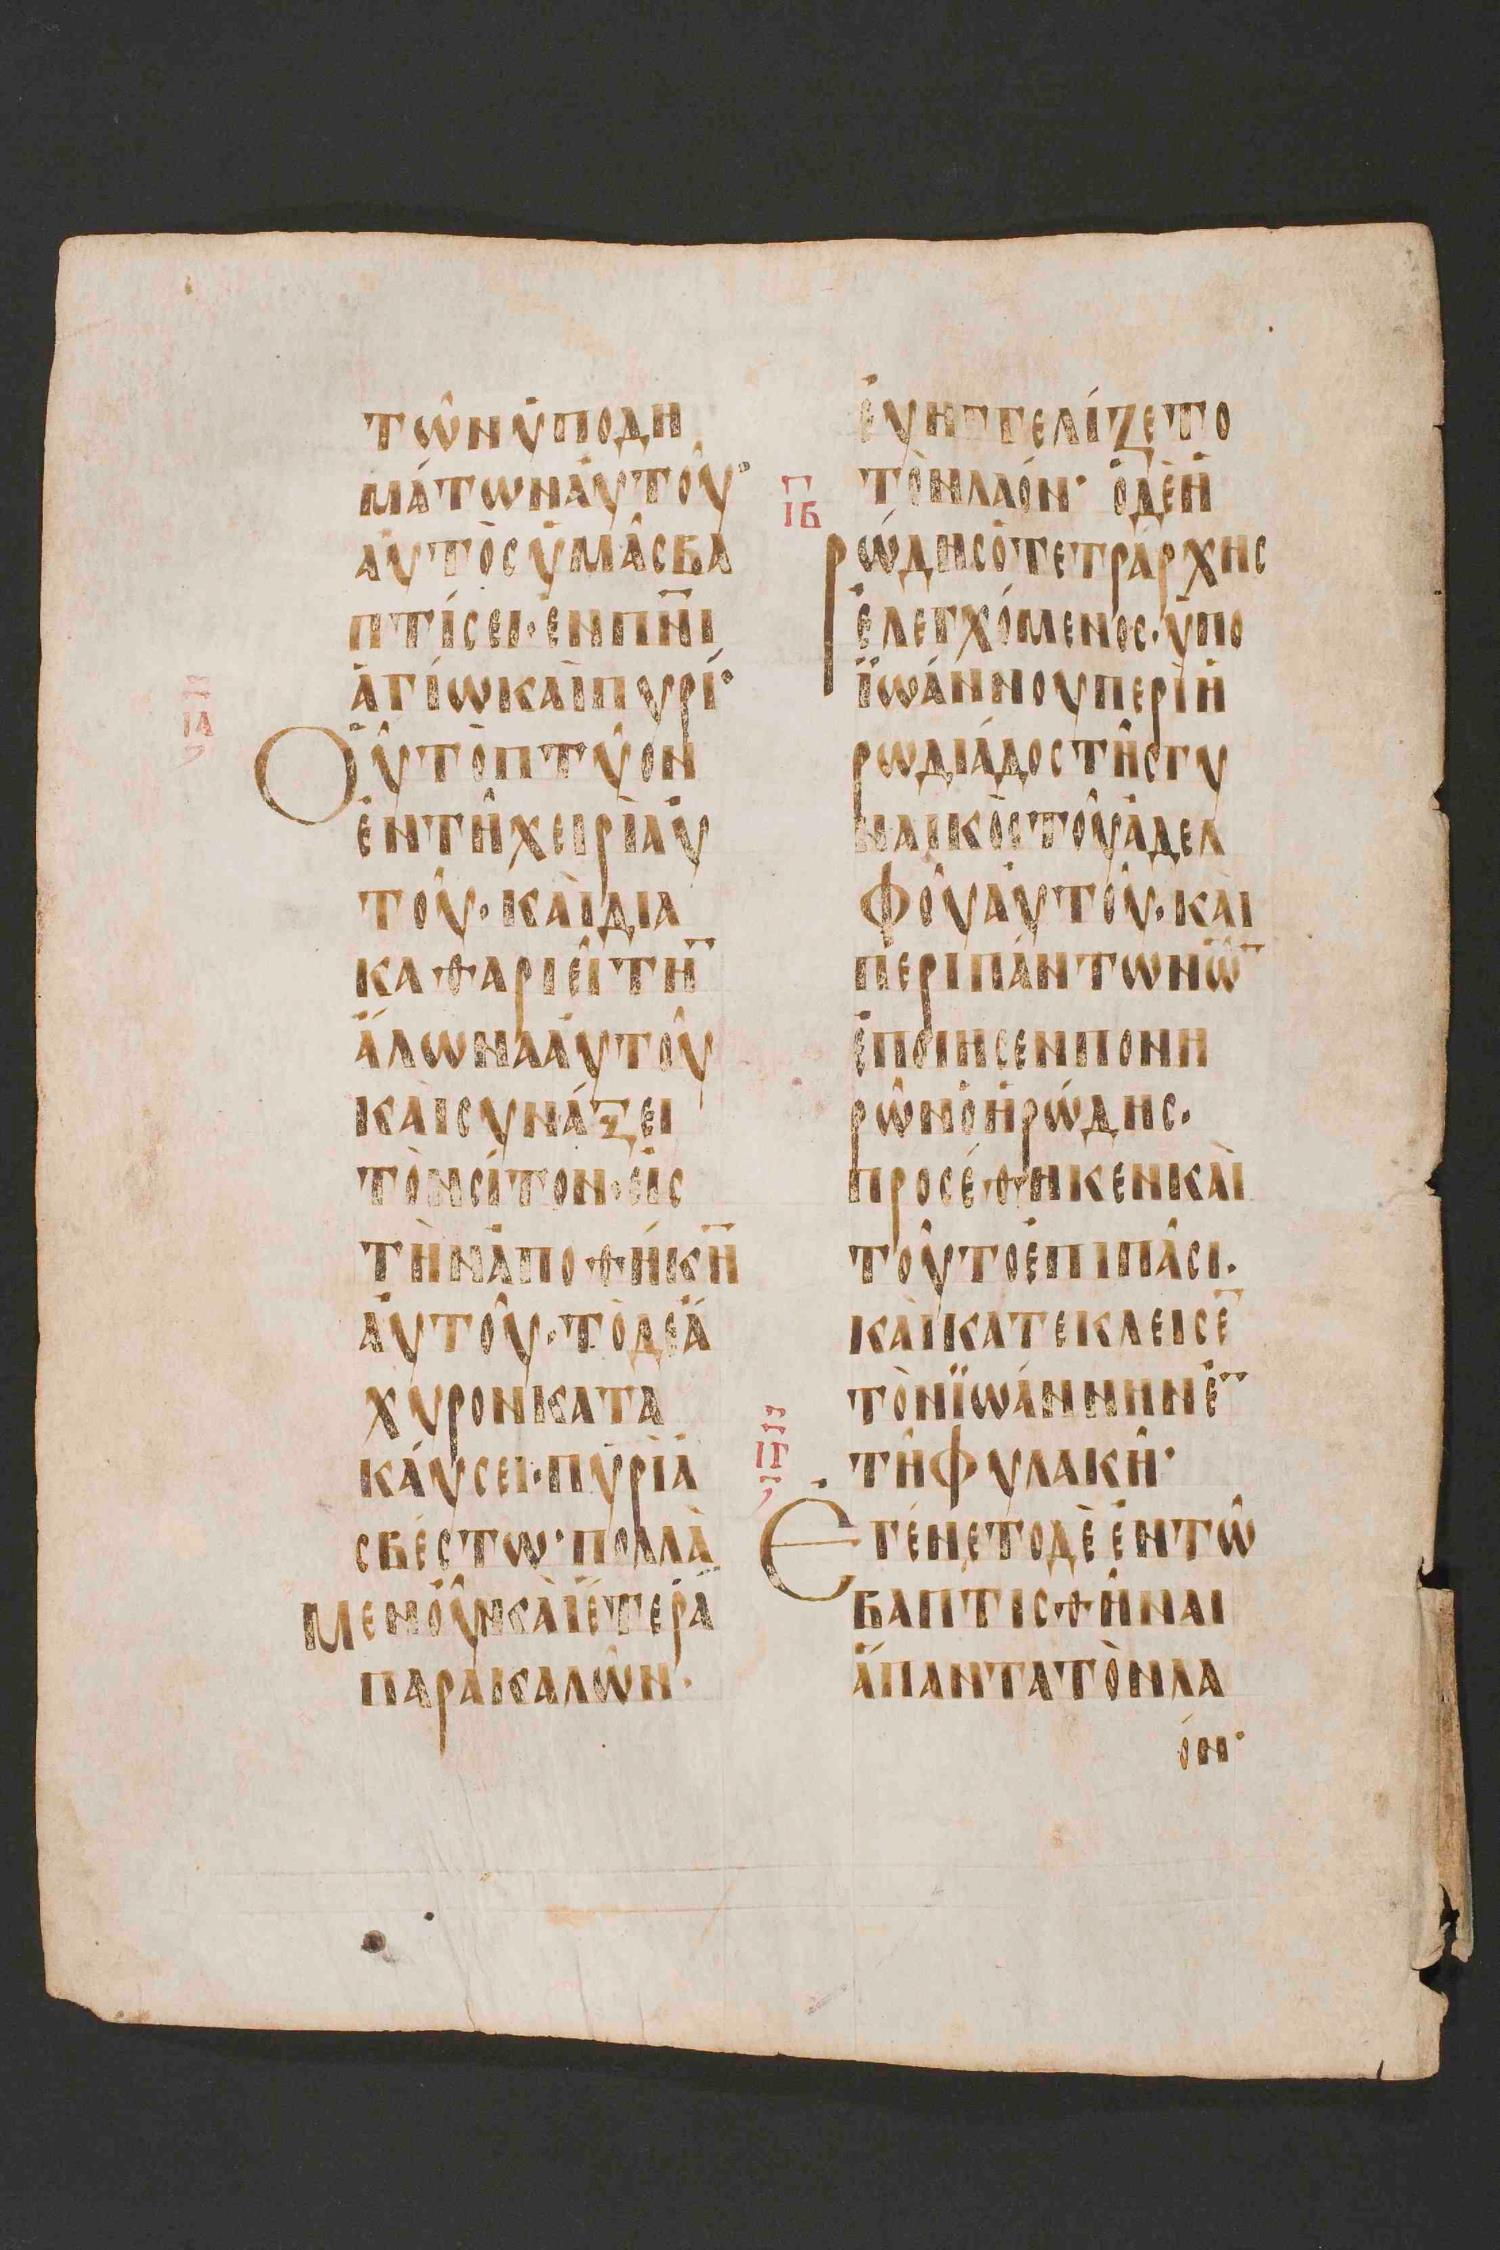 τῶν ὑποδη
μάτων ἀυτοῦ·
ἀυτὸς ὑμᾶς βα
πτίσει· ἐν πν̅ι
ἁγίω καὶ πυρί·
ΙΑ
Οὗ τὸ πτύον
ἐν τῆ χειρὶ ἀυ
τοῦ· καὶ δια
καθαριεῖ τη̅
ἅλωνα ἀυτοῦ
καὶ συνάξει
τὸν σίτον· εἰς
τὴν ἀποθήκη̅
ἀυτοῦ· τὸ δε ἄ
χυρον κατα
κάυσει· πυρὶ ἀ
σβέστω· πολλὰ
Μεν οὖν καὶ ἕτερα
παρακαλῶν·
ἐυηγγελίζετο
τὸν λαόν· ὁ δὲ ἡ
Γ
ΙΒ
ρώδης ὁ τετράρχης
ἐλεγχόμενος· ὑπο
ϊωάννου περὶ ἡ
ρωδιάδος τῆς γυ
ναικὸς τοῦ ἀδελ
φοῦ ἀυτοῦ· καὶ
περι πάντων ὧ̅
ἐποιησεν πονη
ρῶν ὁ ἡρώδης·
προσέθηκεν καὶ
τοῦτο ἐπι πᾶσι·
καὶ κατεκλεισε̅
τὸν ϊωάννην ἐ̅
τῆ φυλακῆ·
ΙΓ
Ἐγένετο δὲ ἐν τῶ
βαπτισθῆναι
ἅπαντα τὸν λα
όν·